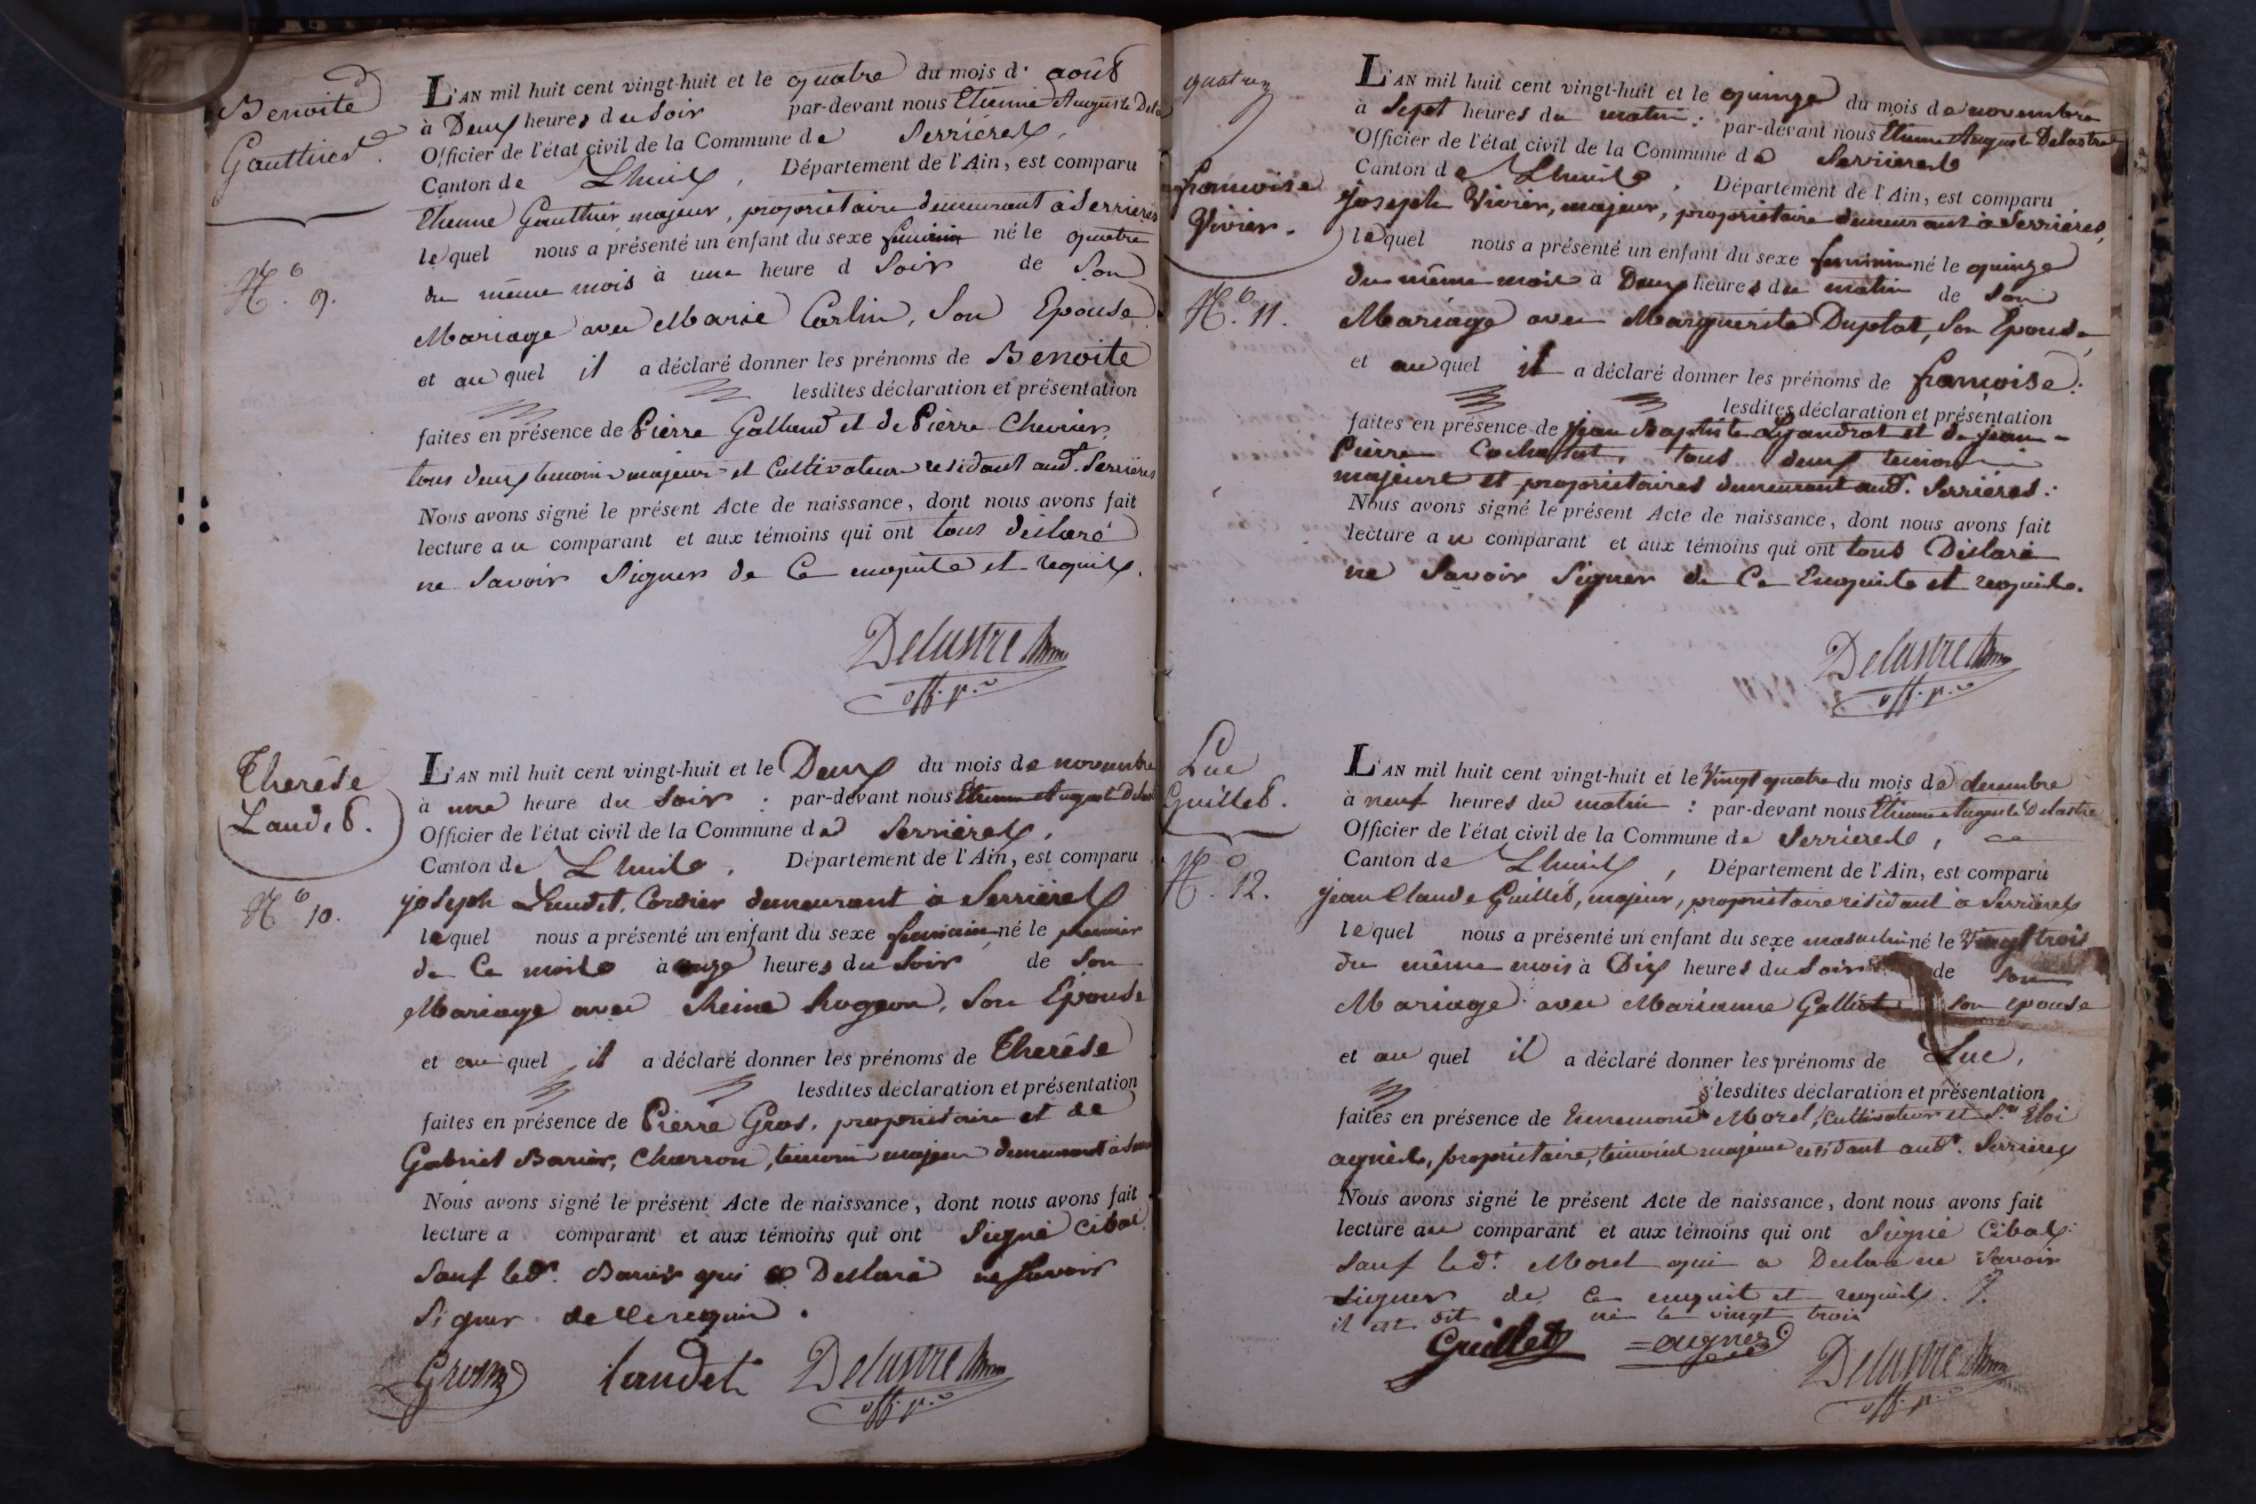 Benoite
Gauthier.
N.o 9.
L'AN mil huit cent vingt-huit et le quatre du mois d' août
à Deux heures du Soir par-devant nous Etienne Auguste
Officier de l'état civil de la Commune de Serrières,
Canton de Lhuis, Département de l'Ain, est comparu
Etienne Gauthier majeur, propriétaire demeurant à Serrières
lequel nous a présenté un enfant du sexe feminin né le quatre
du même mois à une heure d Soir de Son
Mariage avec Marie Carlin, Son Epouse
et au quel il a déclaré donner les prénoms de Benoite
lesdites déclaration et présentation
faites en présence de Pierre Galland et de Pierre Chevrier,
tous deux temoins majeurs et Cultivateurs residant aud. Serrières
Nous avons signé le présent Acte de naissance, dont nous avons fait
lecture au comparant et aux témoins qui ont tous déclaré
ne Savoir Signer de Ce enquis et requis.
Delastre
off. p.
Therèse
Laudet.
N.o 10.
L'AN mil huit cent vingt-huit et le Deux du mois de novembre
à une heure du Soir : par-devant nous Etienne Auguste
Officier de l'état civil de la Commune de Serrières,
Canton de Lhuis, Département de l'Ain, est comparu
joseph Laudet, Cordier demeurant à Serrières
lequel nous a présenté un enfant du sexe feminin né le premier
de Ce mois à onze heures du Soir de Son
Mariage avec Reine hugeon, Son Epouse
et au quel il a déclaré donner les prénoms de Therèse
lesdites déclaration et présentation
faites en présence de Pierre Gros, propriétaire et de
Gabriel Barier, Charron, temoins majeurs demeurant à
Nous avons signé le présent Acte de naissance, dont nous avons fait
lecture a comparant et aux témoins qui ont Signé Cibas
Sauf led. Barier qui a Déclaré ne Savoir
Signer de Ce requis.
Gros
Laudet
Delastre
off. p.
quatre
francoise
Vivier.
N.o 11.
L'AN mil huit cent vingt-huit et le quinze du mois de novembre
à Sept heures du matin : par-devant nous Etienne Auguste Delastre
Officier de l'état civil de la Commune de Serrières
Canton de Lhuis, Département de l'Ain, est comparu
joseph Vivier, majeur, propriétaire demeurant à Serrières,
lequel nous a présenté un enfant du sexe feminin né le quinze
du même mois à Deux heures du matin de Son
Mariage avec Marguerite Duplat, Son Epouse
et au quel il a déclaré donner les prénoms de françoise.
lesdites déclaration et présentation
faites en présence de jean Baptiste et de jean
Pierre tous deux temoins
majeurs et propriétaires demeurant aud. Serrières.
Nous avons signé le présent Acte de naissance, dont nous avons fait
lecture au comparant et aux témoins qui ont tous Déclaré
ne Savoir Signer de Ce Enquis et requis.
Delastre
off. p.
Luc
Guillet.
N.o 12.
L'AN mil huit cent vingt-huit et le Vingt quatre du mois de décembre
à neuf heures du matin : par-devant nous Etienne Auguste Delastre
Officier de l'état civil de la Commune de Serrières,
Canton de Lhuis, Département de l'Ain, est comparu
jean Claude Guillet, majeur, propriétaire résidant à Serrières
lequel nous a présenté un enfant du sexe masculin né le Vingt trois
du même mois à Dix heures du Soir de Son
Mariage avec Marianne son epouse
et au quel il a déclaré donner les prénoms de Luc,
lesdites déclaration et présentation
faites en présence de Enremond Morel, Cultivateur et Eloi
agnès, propriétaire, temoins majeurs résidant aud. Serrières
Nous avons signé le présent Acte de naissance, dont nous avons fait
lecture au comparant et aux témoins qui ont Signé Cibas.
Sauf led. Morel qui a Déclaré ne Savoir
Signer de Ce enquis et requis.
il est dit né le vingt trois
Guillet
agnes
Delastre
off. p.